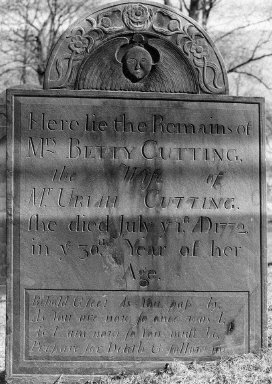 Here lie the Remains of
Mrs. BETTY CUTTING,
the Wife of
Mr. URIAH CUTTING.
She died July ye 1st. AD 1772
in ye 30th. Year of her
Age.
Behold & see As You pass by,
As You are now so once was I,
As I am now so You must be,
Prepare for Death & follow me